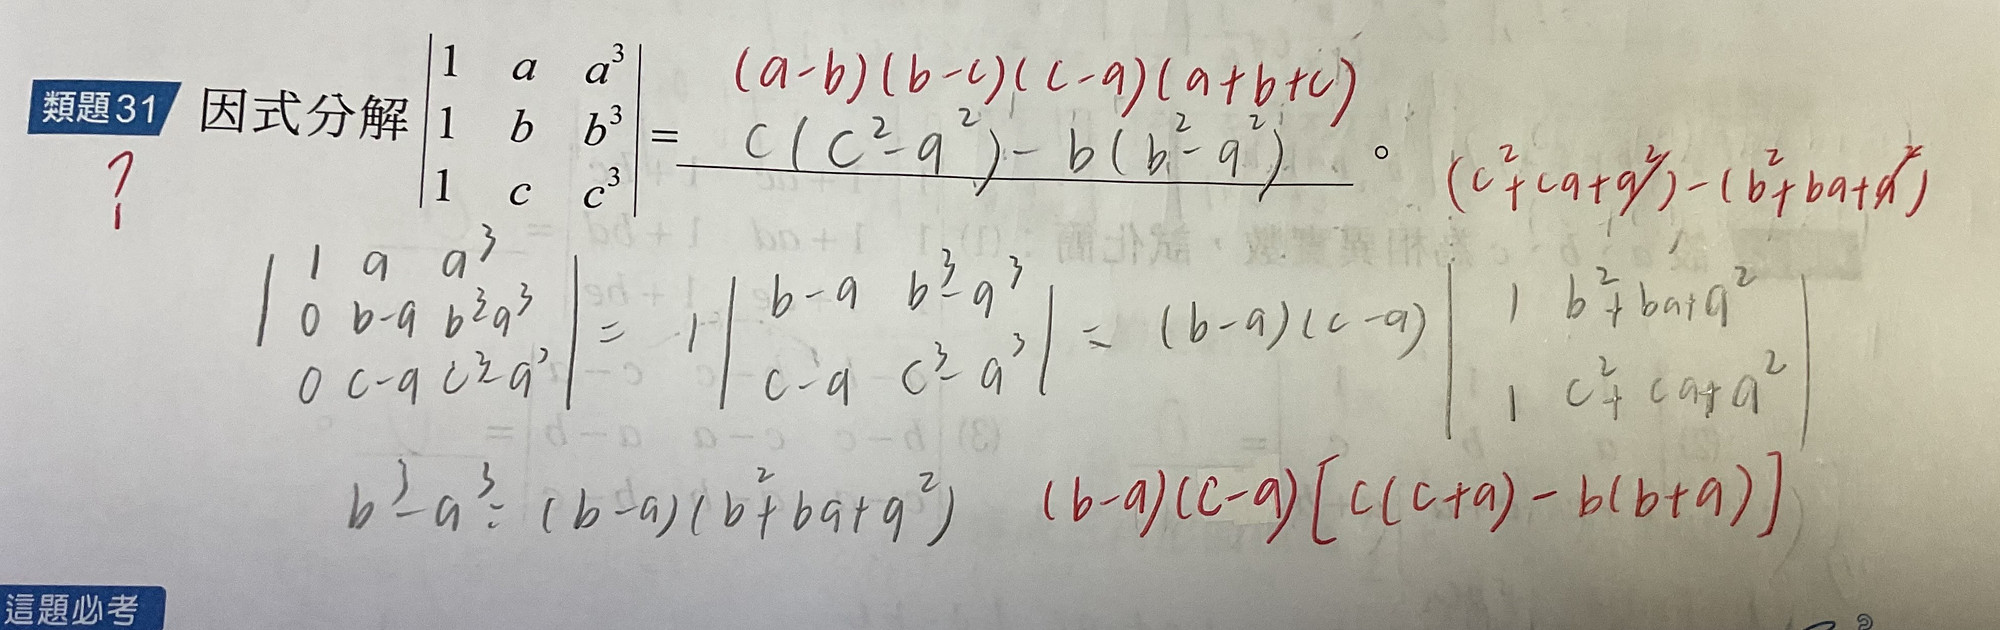 類題31 因式分解 |1 a a³; 1 b b³; 1 c c³| = c(c²-a²)-b(b²-a²) 。
(a-b)(b-c)(c-a)(a+b+c)
?
(c²+ca+a²)-(b²+ba+a²)
|1 a a³; 0 b-a b³-a³; 0 c-a c³-a³| = 1|b-a b³-a³; c-a c³-a³| = (b-a)(c-a)|1 b²+ba+a²; 1 c²+ca+a²|
b³-a³=(b-a)(b²+ba+a²)
(b-a)(c-a)[c(c+a)-b(b+a)]
這題必考